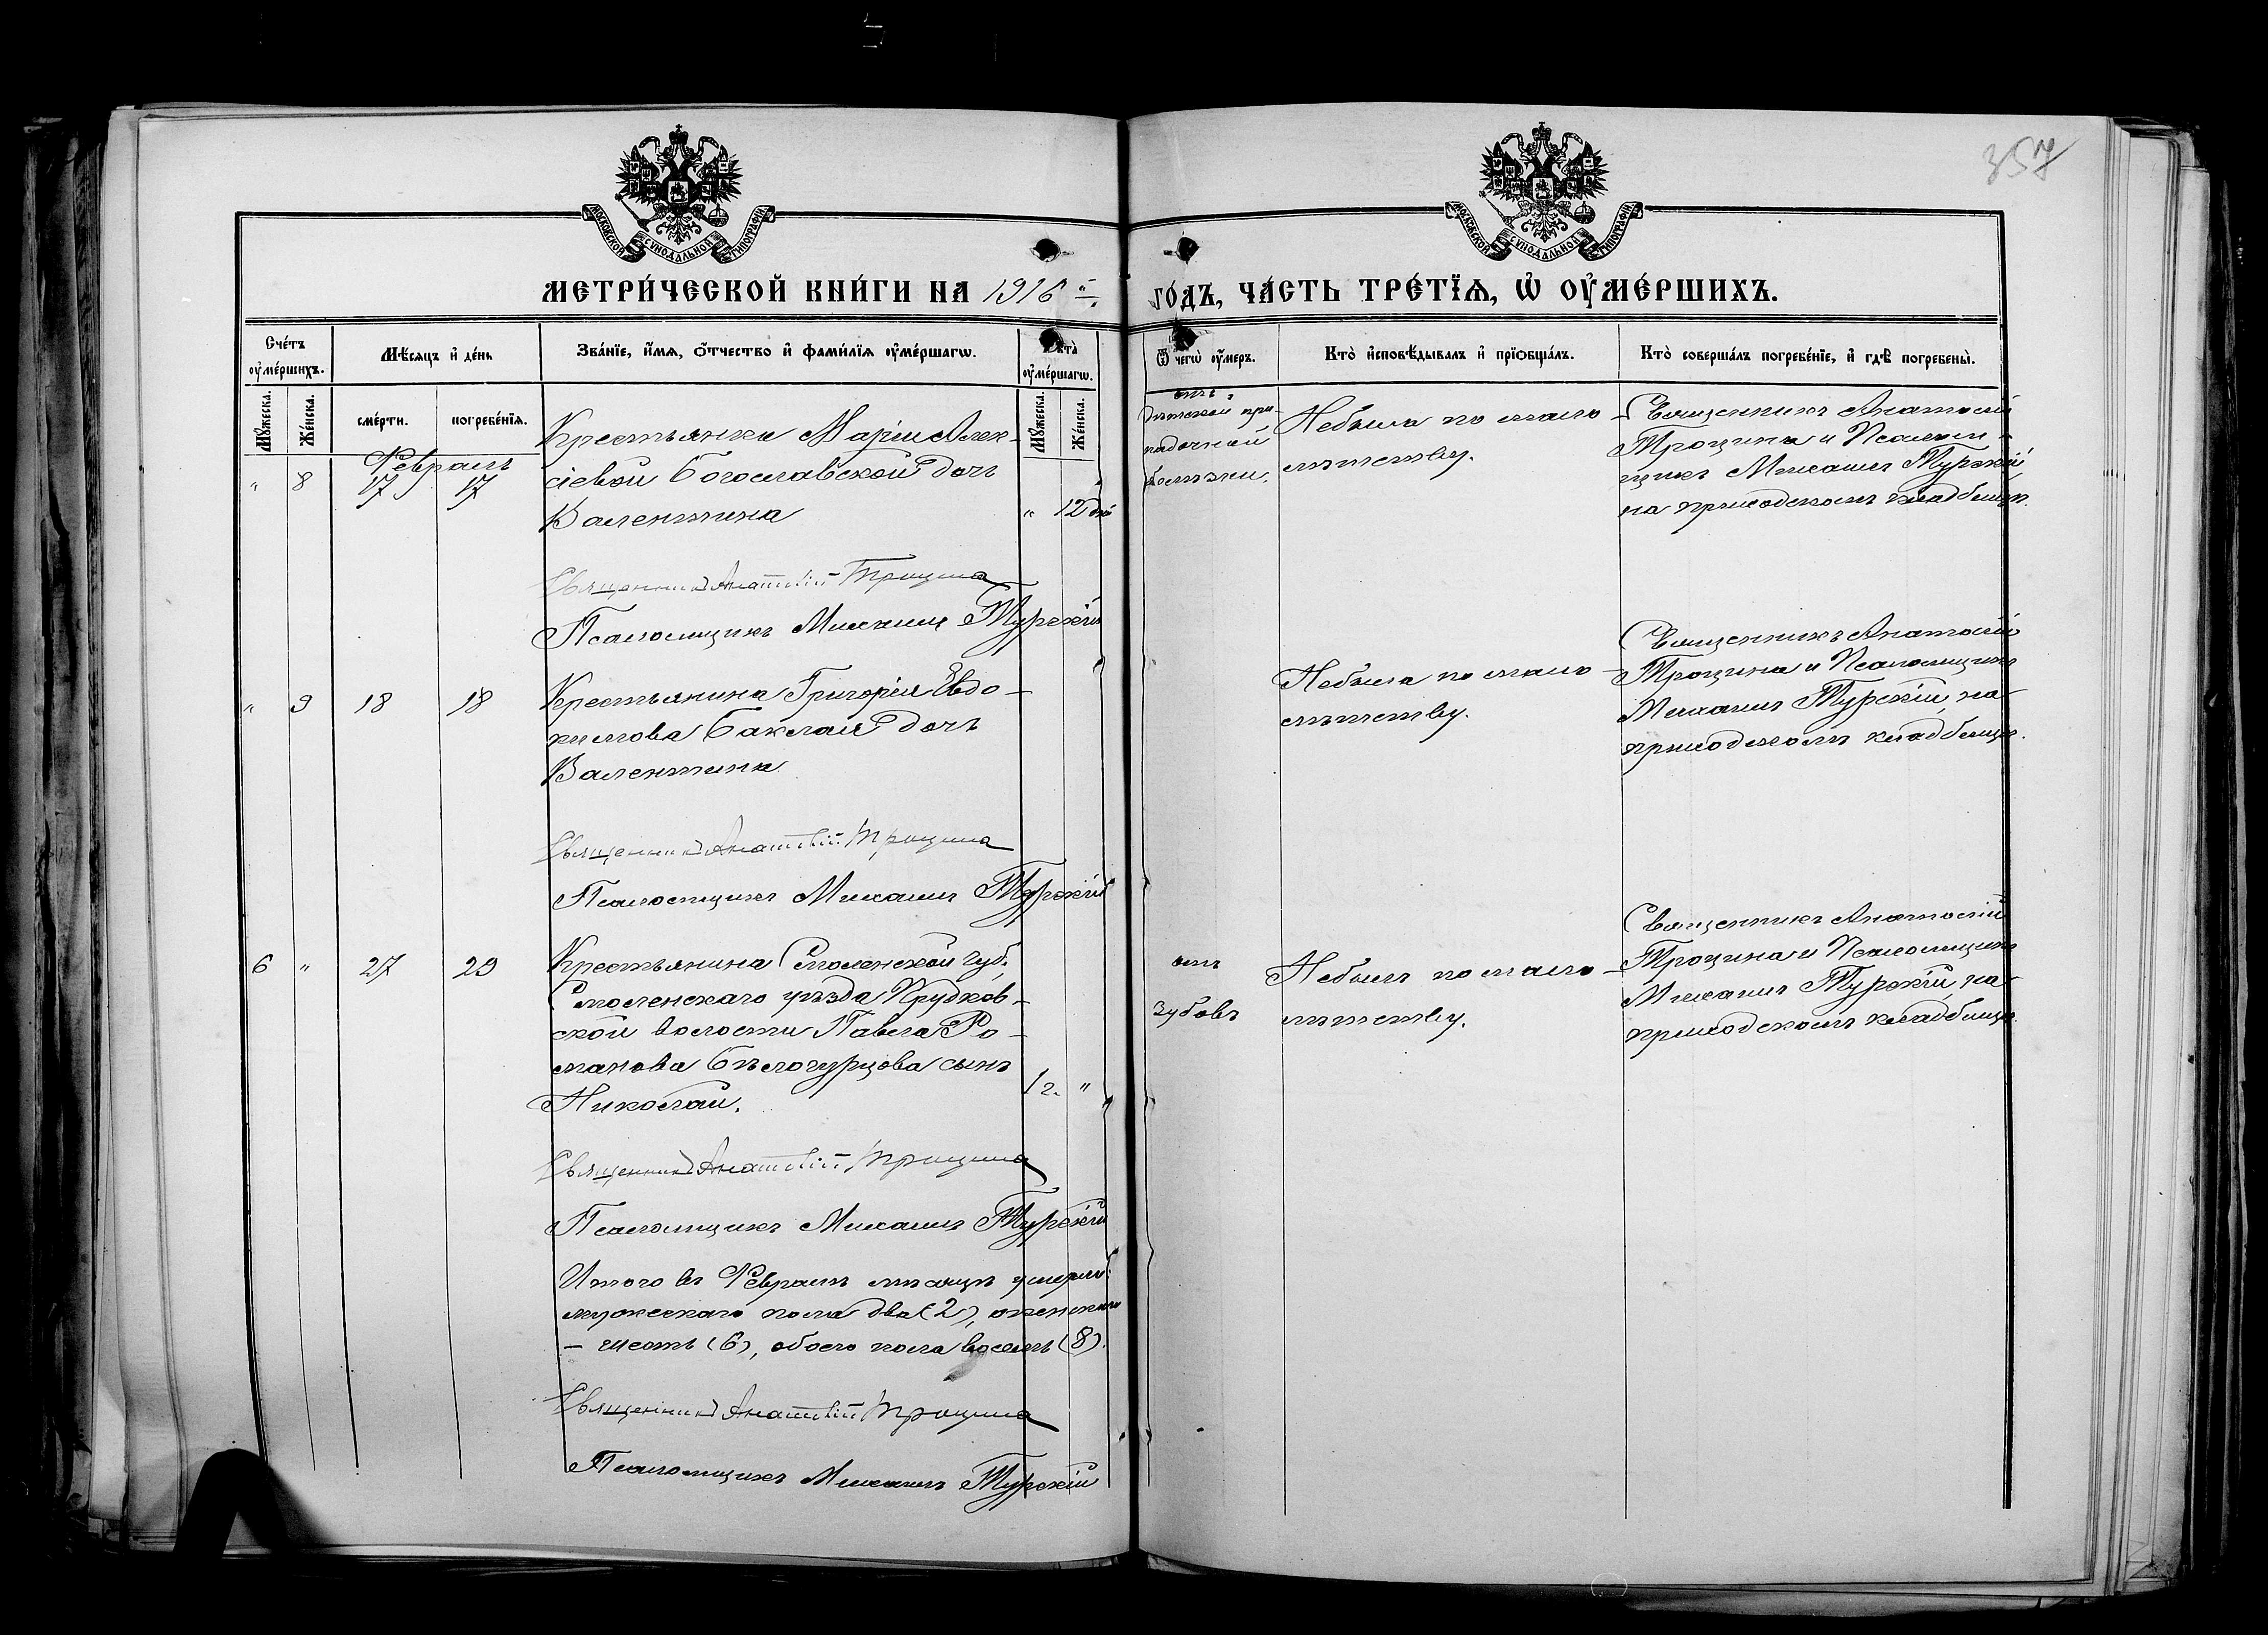 357
МОСКОВСКОЙ СѴНОДАЛЬНОЙ ТИПОГРАФІИ
МОСКОВСКОЙ СѴНОДАЛЬНОЙ ТИПОГРАФІИ
МЕТРИ́ЧЕСКОЙ КНИ́ГИ НА 1916 й
ГО́ДЪ, ЧА́СТЬ ТРЕ́ТЇѦ, Ѡ҆ ОУ҆МЕ́РШИХЪ.
Сче́тъ оу҆ме́ршихъ.
Мѣ́сѧцъ и҆ де́нь
Зва́нїе, и҆́мѧ, ѻ҆́тчество и҆ фами́лїѧ оу҆ме́ршагѡ.
Лѣ́та̀ оу҆ме́ршагѡ.
Ѿ чегѡ̀ оу҆́меръ.
Кто̀ и҆сповѣ́дывалъ и҆ прїобща́лъ.
Кто̀ соверша́лъ погребе́нїе, и҆ гдѣ̀ погребены̀.
Мꙋ́жеска.
Же́нска.
сме́рти.
погребе́нїѧ.
Мꙋ́жеска.
Же́нска.
Февраль
" 8 17 17
Крестьянки Маріи Алек-
сіевой Богославской дочь
Валентина
" 12 дн
отъ
дѣтской при-
падочной
болѣзни.
Небыла по мало-
лѣтству.
Священникъ Анатолій
Трощина и Псалом-
щикъ Михаилъ Турскій
на приходскомъ кладбищѣ.
Священникъ Анатолій Трощина
Псаломщикъ Михаилъ Турскій
" 9 18 18
Крестьянина Григорія Евдо-
кимова Баклая дочь
Валентина
Небыла по мало-
лѣтству.
Священникъ Анатолій
Трощина и Псаломщикъ
Михаилъ Турскій, на
приходскомъ кладбищѣ.
Священникъ Анатолій Трощина
Псаломщикъ Михаилъ Турскій
6 " 27 29
Крестьянина Смоленской губ.,
Смоленскаго уѣзда Прудков-
ской волости Павла Ро-
манова Бѣлогурцова сынъ
Николай.
1 г. "
отъ
зубовъ
Небылъ по мало-
лѣтству.
Священникъ Анатолій
Трощина и Псаломщикъ
Михаилъ Турскій, на
приходскомъ кладбищѣ.
Священникъ Анатолій Трощина
Псаломщикъ Михаилъ Турскій
Итого въ Февралѣ мѣсяцѣ умерло:
мужескаго пола два (2), женскаго
- шесть (6), обоего пола восемь (8).
Священникъ Анатолій Трощина
Псаломщикъ Михаилъ Турскій